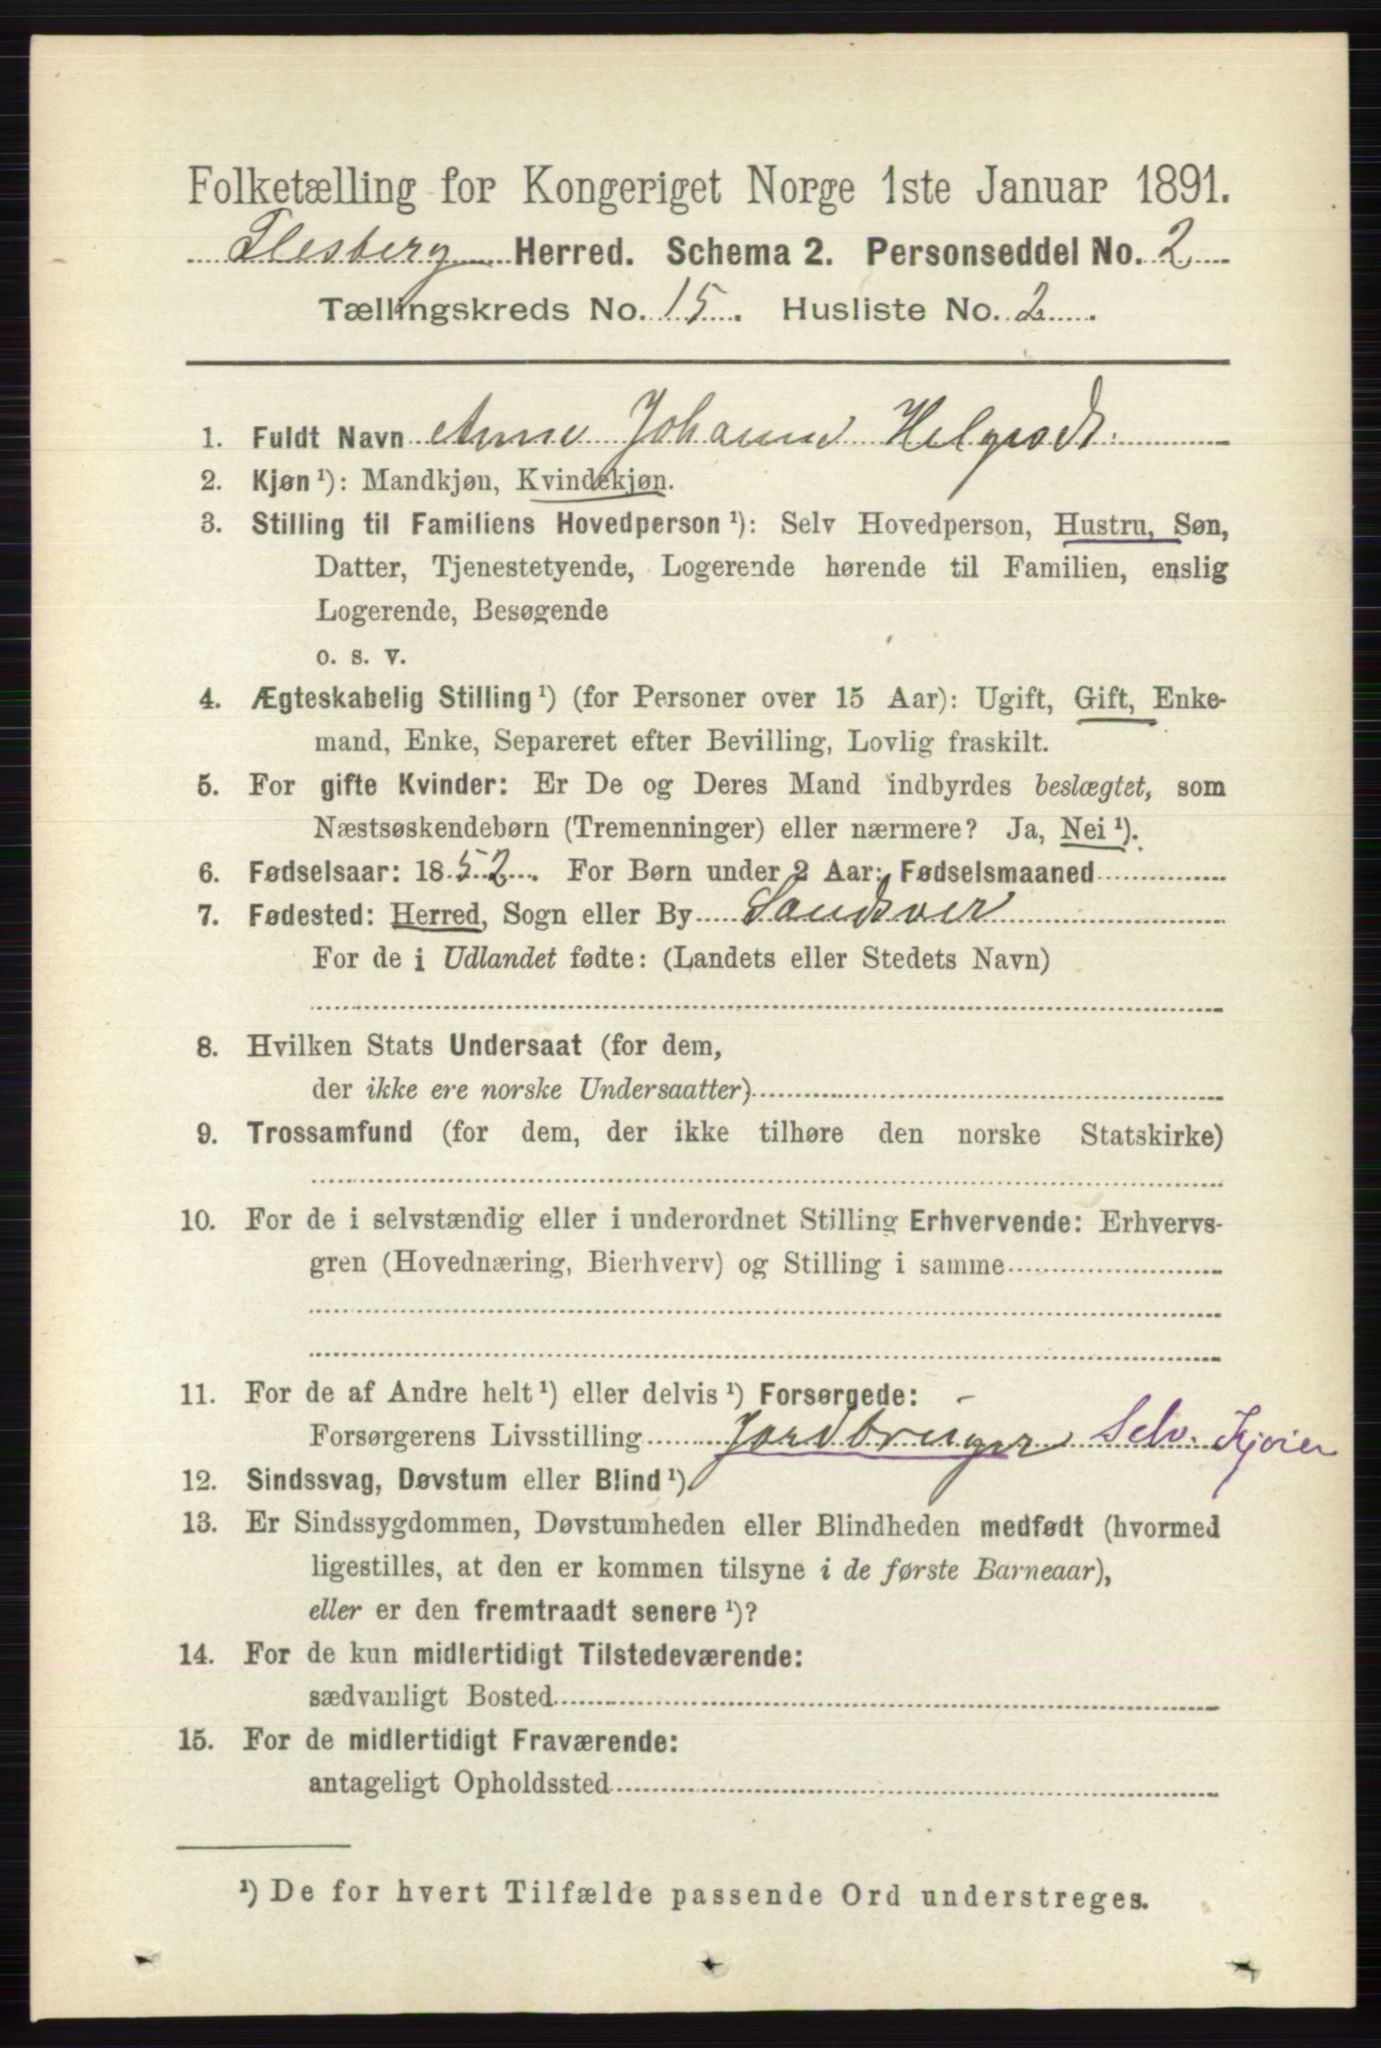 Folketælling for Kongeriget Norge 1ste Januar 1891.
Flesberg Herred. Schema 2. Personseddel No. 2
Tællingskreds No. 15. Husliste No. 2
1. Fuldt Navn Anne Johanne
2. Kjøn ¹): Mandkjøn, Kvindekjøn.
3. Stilling til Familiens Hovedperson ¹): Selv Hovedperson, Hustru, Søn,
Datter, Tjenestetyende, Logerende hørende til Familien, enslig
Logerende, Besøgende
o. s. v.
4. Ægteskabelig Stilling ¹) (for Personer over 15 Aar): Ugift, Gift, Enke-
mand, Enke, Separeret efter Bevilling, Lovlig fraskilt.
5. For gifte Kvinder: Er De og Deres Mand indbyrdes beslægtet, som
Næstsøskendebørn (Tremenninger) eller nærmere? Ja, Nei ¹).
6. Fødselsaar: 1852. For Børn under 2 Aar: Fødselsmaaned
7. Fødested: Herred, Sogn eller By Sandsver
For de i Udlandet fødte: (Landets eller Stedets Navn)
8. Hvilken Stats Undersaat (for dem,
der ikke ere norske Undersaatter)
9. Trossamfund (for dem, der ikke tilhøre den norske Statskirke)
10. For de i selvstændig eller i underordnet Stilling Erhvervende: Erhvervs-
gren (Hovednæring, Bierhverv) og Stilling i samme
11. For de af Andre helt ¹) eller delvis ¹) Forsørgede:
Forsørgerens Livsstilling Jordbruger Selv.
12. Sindssvag, Døvstum eller Blind ¹)
13. Er Sindssygdommen, Døvstumheden eller Blindheden medfødt (hvormed
ligestilles, at den er kommen tilsyne i de første Barneaar),
eller er den fremtraadt senere ¹)?
14. For de kun midlertidigt Tilstedeværende:
sædvanligt Bosted
15. For de midlertidigt Fraværende:
antageligt Opholdssted
¹) De for hvert Tilfælde passende Ord understreges.